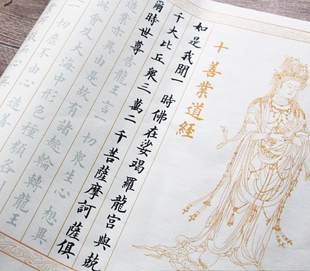 十善業道經
如是我聞一時佛在娑竭羅龍宮與
千大比丘眾三萬二千菩薩摩訶薩俱
爾時世尊
龍王言一切眾生心想異
造業亦異
是故有諸趣輪轉龍王
會及大海中形色種類各
一切
不由心造善